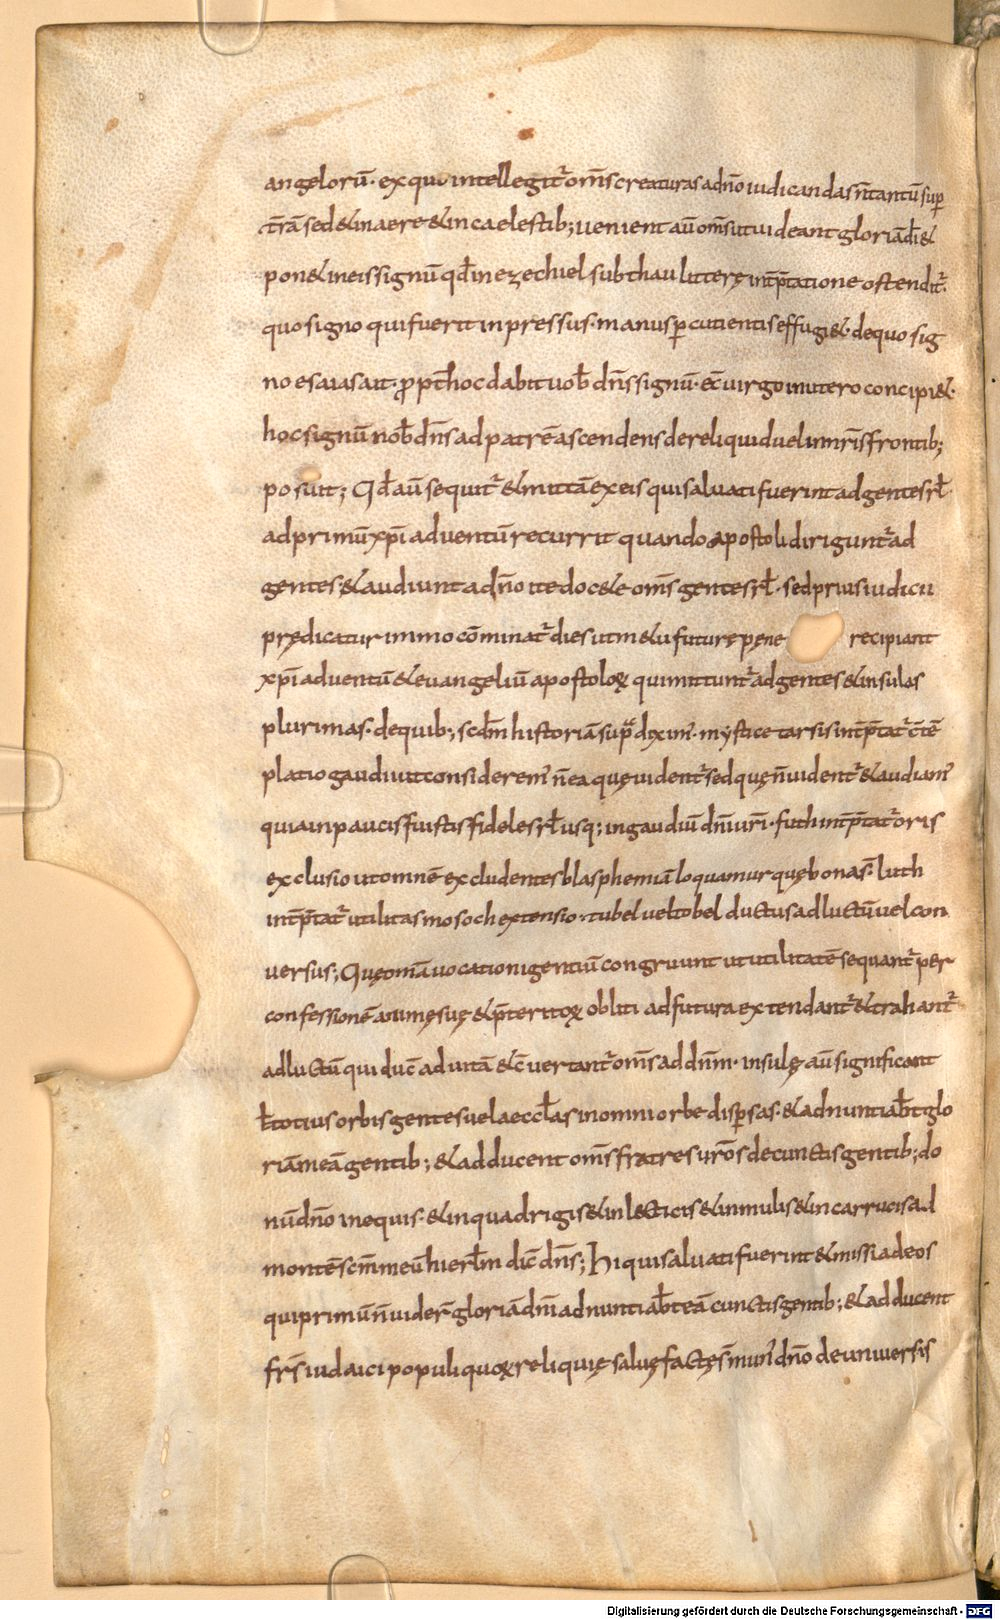 angelorū· ex quo intellegit̃ om̄s creaturas ad nō iudicandas n̄ tantū sup̱
t̄rā sed & in aere & in caelestib; uenient aū om̄s ut uideant gloriā dī &
pon& in eis signū qđ in ezechiel sub thau litterę int̄p̄tatione ostendit̃·
quo signo qui fuerit inpressus· manus p̱cutientis effugi&· de quo sig
no esaias ait· ꝓpt̄ hoc dabit uob̄ dn̄s signū· ecc̄ uirgo in utero concipi&·
hoc signū nob̄ dn̄s ad patrē ascendens dereliquid uel in nr̄is frontib;
posuit; Qđ aū sequit̃ & mittā ex eis qui saluati fuerint ad gentes rł
ad primū xp̄i aduentū recurrit quando apostoli dirigunt̃ ad
gentes· & audiunt a dn̄o ite doc&e om̄s gentes rł· sed prius iudicii
prędicatur immo cōminat̃ dies ut m&u futurę pęnę recipiant
xp̄i aduentū & euangeliū apostoloꝝ qui mittunt̃ ad gentes & insulas
plurimas· de quib; scđm historiā sup̄ diximꝰ· mystice tarsis int̄p̄tat̃ c̄tē
platio gaudii ut consideremꝰ n̄ ea quę uident̃ sed quę n̄ uident̃ & audiamꝰ
quia in paucis fuistis fideles rł usq; in gaudiū dn̄i ur̄i· futh int̄p̄tat̃ oris
exclusio ut omnē excludentes blasphemiā loquamur quę bona s̄· luth
int̄p̄tat̃ utilitas mosoch extensio· tubel uel tobel ductus ad luctū uel con
uersus; Quę om̄a uocationi gentiū congruunt ut utilitatē sequant̃ per
confessionē animę suę & p̄teritoꝝ obliti ad futura extendant̃ & trahant̃
ad luctū qui duc̄ ad uitā & c̄uertant̃ om̄s ad dn̄m· insulę aū significant
ł totius orbis gentes uel aeccl̄as in omni orbe disp̱sas· & adnuntiab̄t glo
riā meā gentib; & adducent om̄s fratres ur̄os de cunctis gentib; do
nū dn̄o in equis· & in quadrigis & in lecticis & in mulis & in carrucis ad
montē sc̄m meū hierl̄m dic̄ dn̄s; Hi qui saluati fuerint & missi ad eos
qui primū n̄ uider̄ gloriā dn̄i adnuntiab̄t eā cunctis gentib; & adducent
fr̄s iudaici populi quoꝝ reliquię saluę factę s̄ munꝰ dn̄o de uniuersis
Digitalisierung gefördert durch die Deutsche Forschungsgemeinschaft - DFG